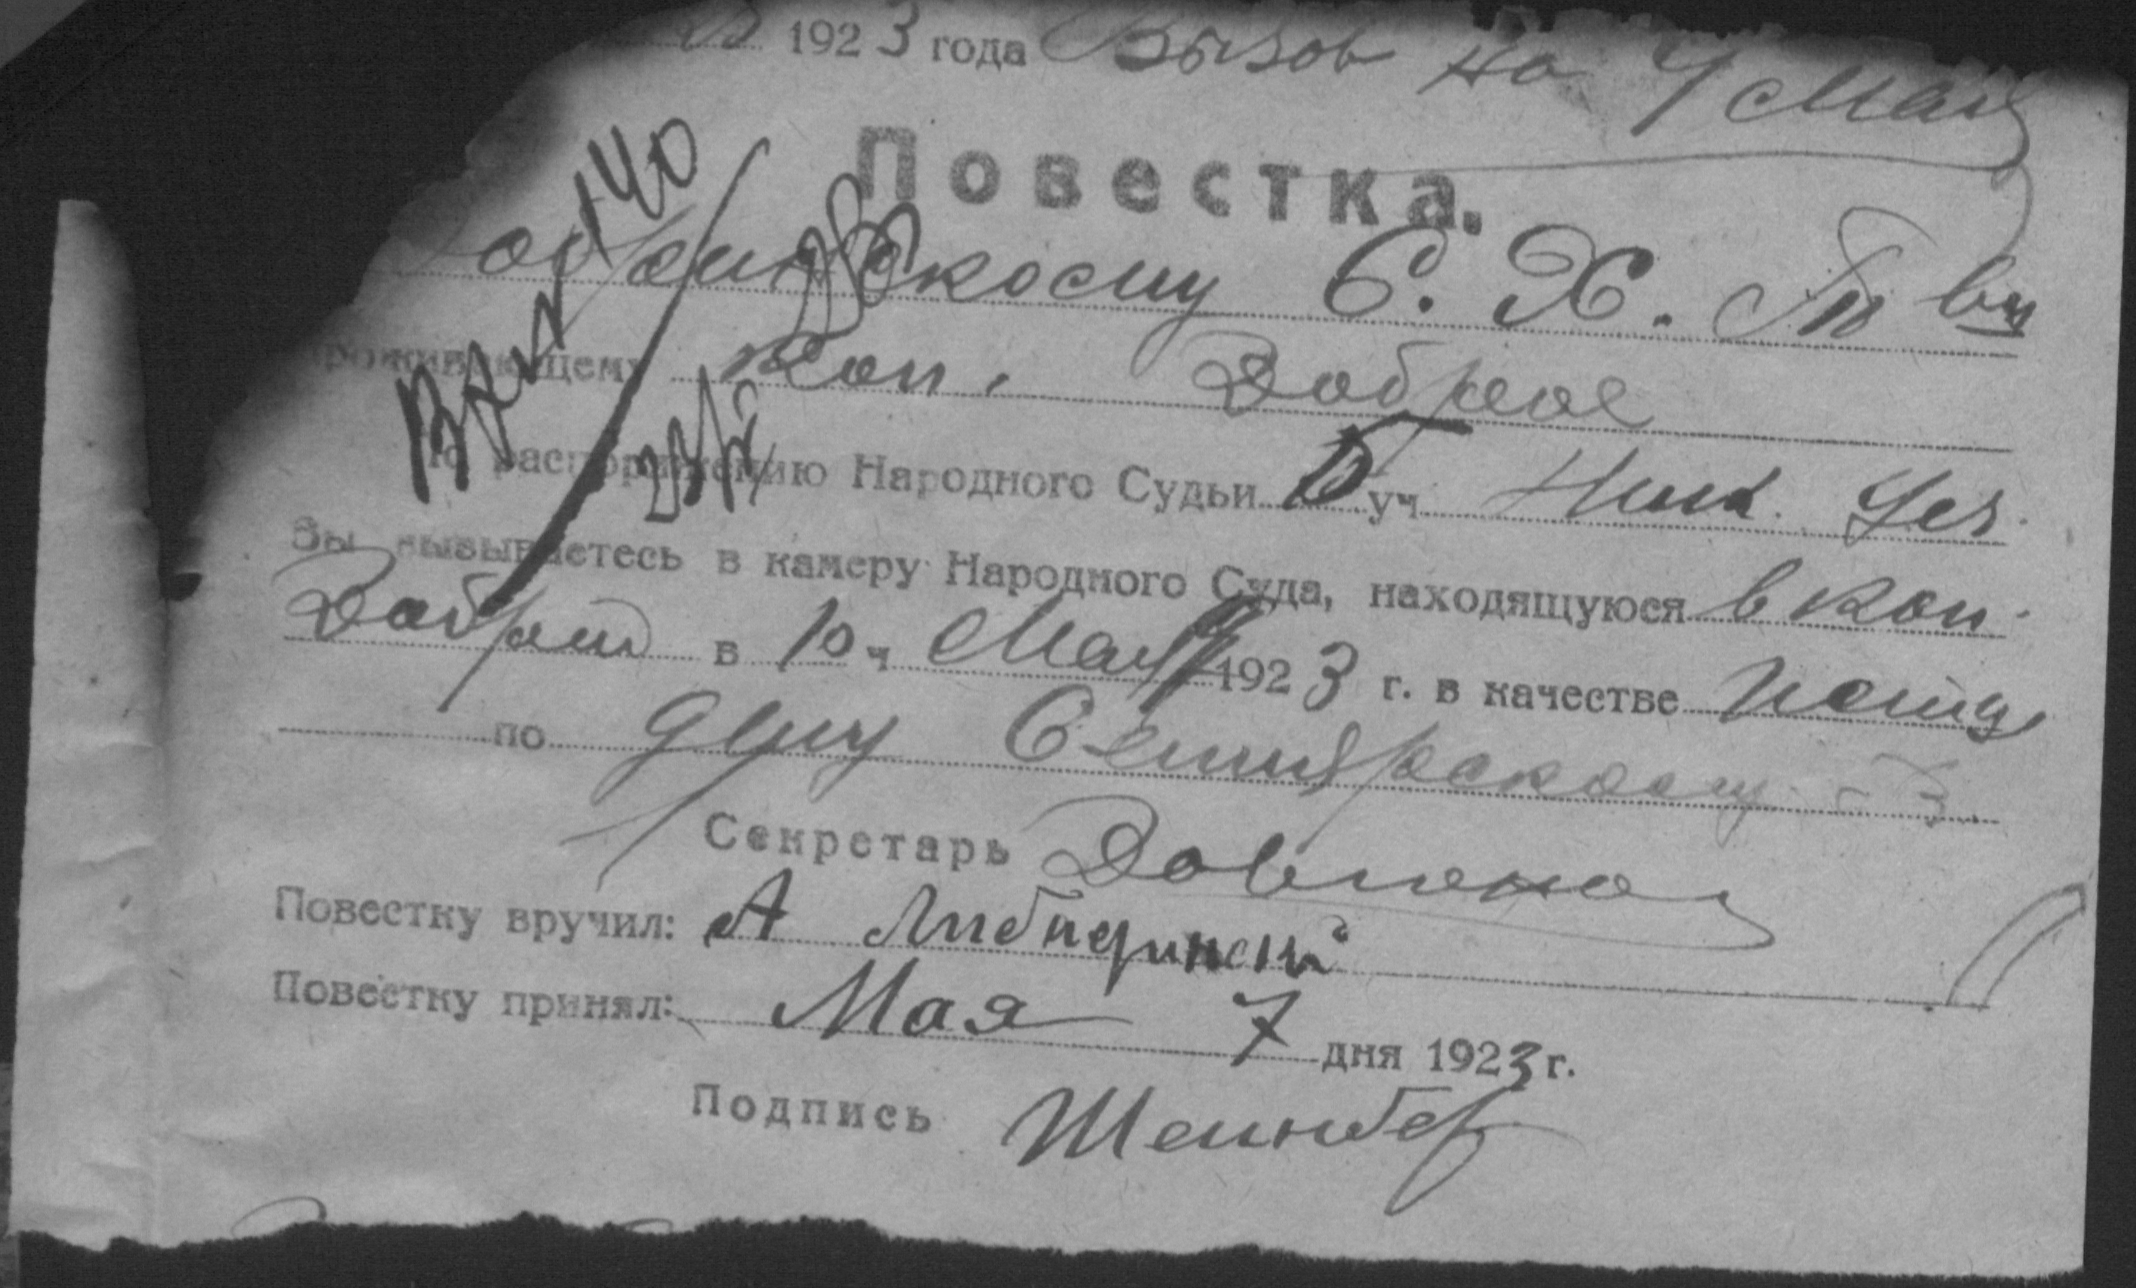 1923 года Вызов на 9 Мая
Повестка.
С. Х. Т-ву
проживающему Кол. Доброе
По распоряжению Народного Судьи 5 уч Ник. Уез.
Вы вызываетесь в камеру Народного Суда, находящуюся в Кол.
Доброй в 10 ч Мая 9 1923 г. в качестве Истца
по делу
Секретарь
Повестку вручил: А
Повестку принял: Мая 7 дня 1923 г.
Подпись Шейнбер